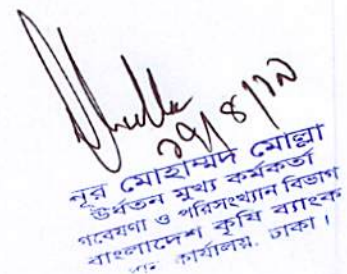 নূর মোহাম্মদ মোল্লা
উর্ধতন মুখ্য কর্মকর্তা
গবেষণা ও পরিসংখ্যান বিভাগ
বাংলাদেশ কৃষি ব্যাংক
কার্যালয়, ঢাকা।